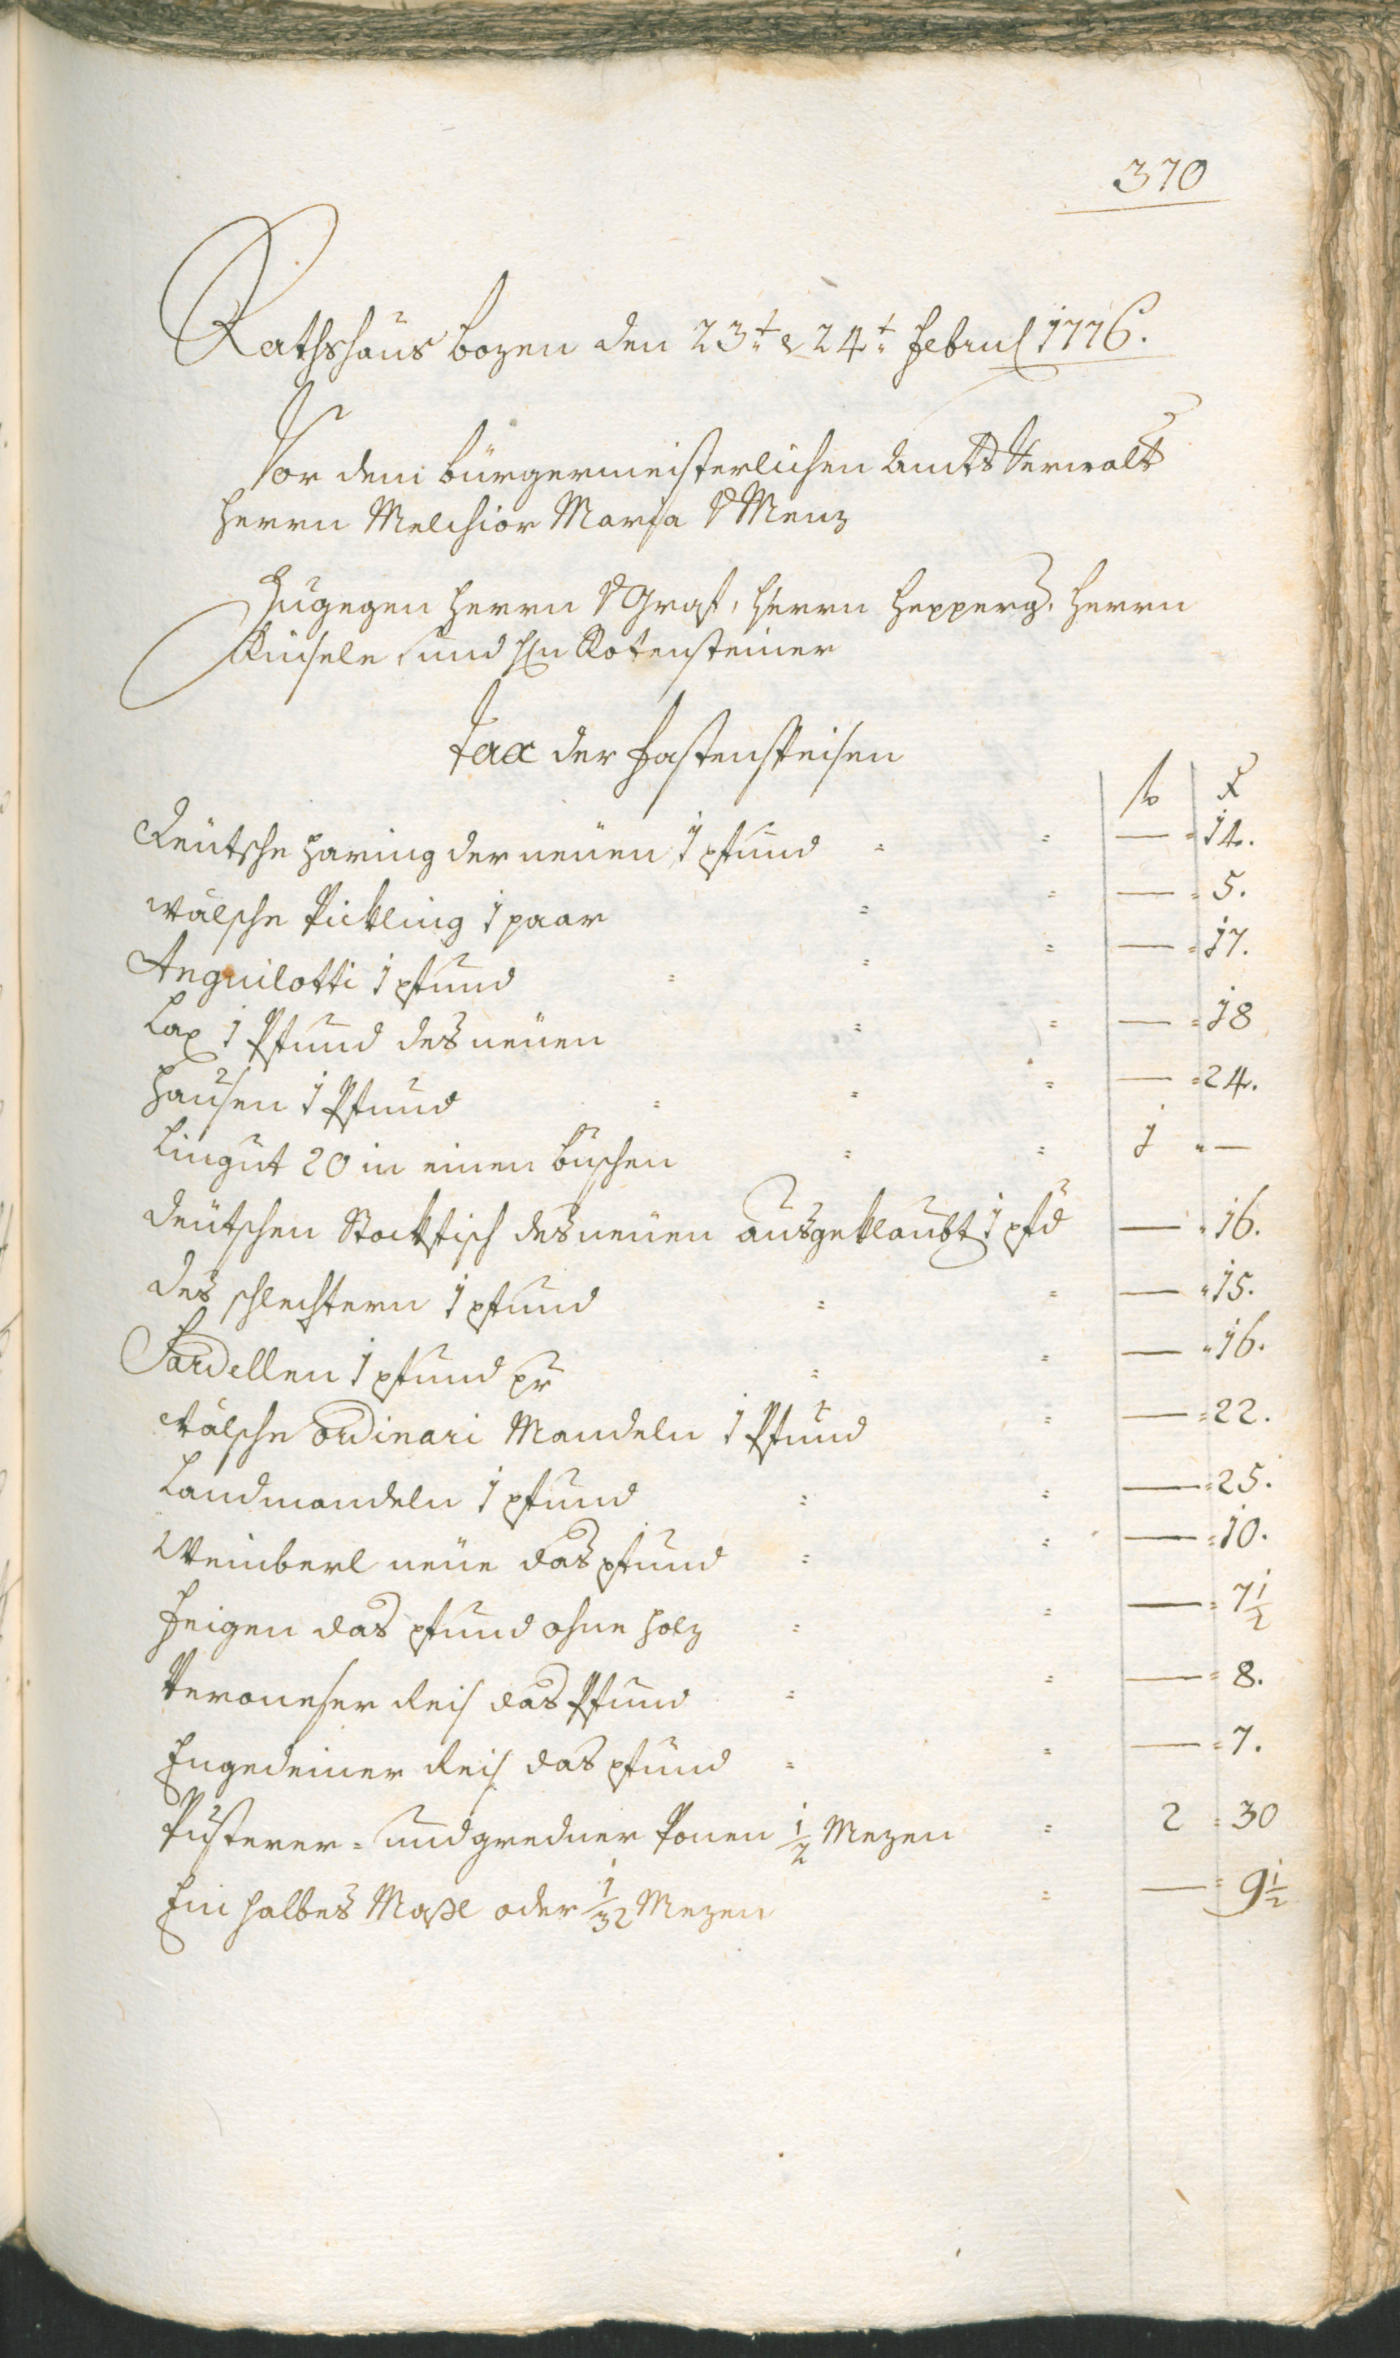 370
Rathshaus bozen den 23t. & 24t. februl 1776.
Vor dem bürgermeisterlichen Amts Verwalt
Herrn Melchior Maria v Menz
Zugegen Herrn v Graf, Herrn Hepperg, Herrn
Kinsele, und Hln Kotensteiner
tax der fastenspeisen
f x
deutsche Haring der neuen 1 pfund = = — = 14.
wälsche Pickling 1 paar = = — = 5.
Anguilotti 1 pfund = = = — = 17.
Lax 1 Pfund des neuen = = — = 18
Hausen 1 Pfund = = = — = 24.
Lingut 20 in einen buschen = = 1 = —
deutschen Stockfisch des neuen ausgeklaubt 1 pfd — = 16.
des schlechtern 1 pfund = = — = 15.
Sardellen 1 pfund pr = = — = 16.
wälsche ordinari Mandeln 1 Pfund = — = 22.
Landmandeln 1 pfund = = — = 25.
Weinberl neue das pfund = = — = 10.
feigen das pfund ohne holz = = — = 7 1/2
Veroneser Reis das Pfund = = — = 8.
Engedeiner Reis das pfund = = — = 7.
Pusterer= und gredner Ponen 1/2 Mezen = 2 = 30
Ein halbes Maßl oder 1/32 Mezen = — = 9 1/2